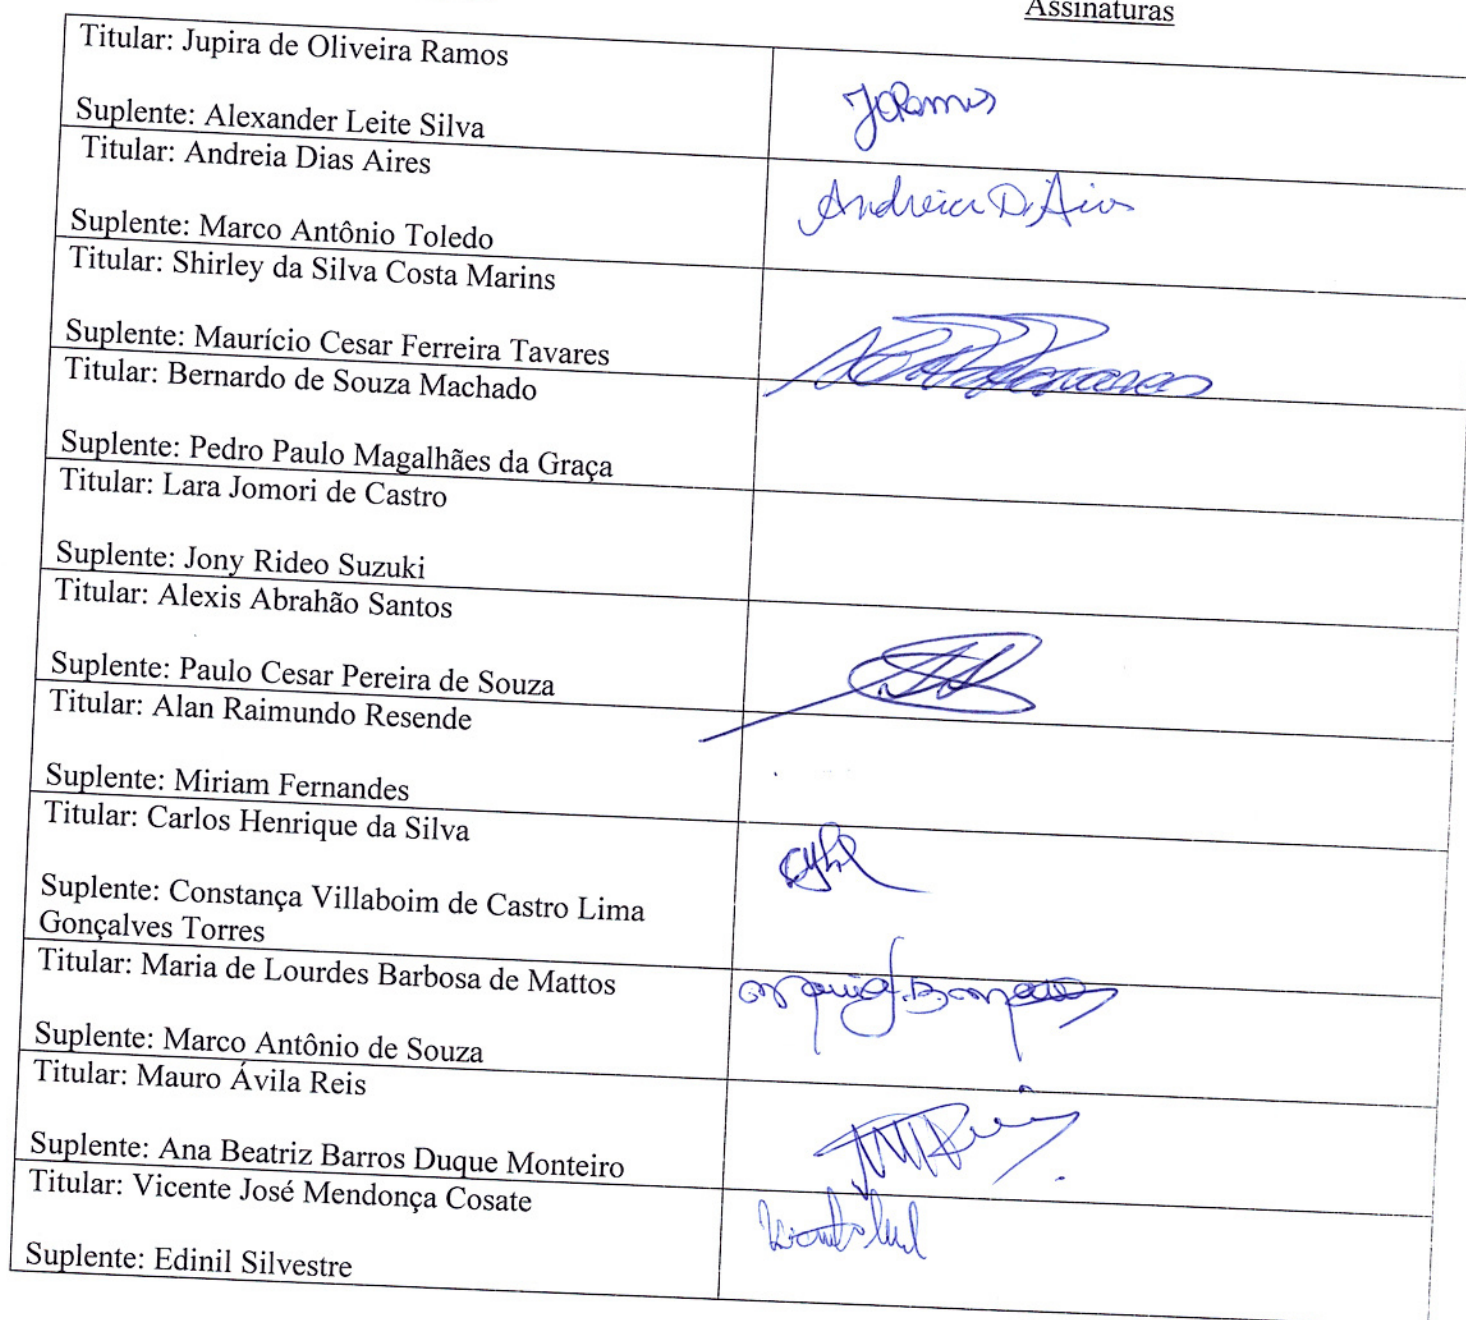 Assinaturas
Titular: Jupira de Oliveira Ramos
JORamos
Suplente: Alexander Leite Silva
Titular: Andreia Dias Aires
Andreia D. Aires
Suplente: Marco Antônio Toledo
Titular: Shirley da Silva Costa Marins
Suplente: Maurício Cesar Ferreira Tavares
Titular: Bernardo de Souza Machado
Suplente: Pedro Paulo Magalhães da Graça
Titular: Lara Jomori de Castro
Suplente: Jony Rideo Suzuki
Titular: Alexis Abrahão Santos
Suplente: Paulo Cesar Pereira de Souza
Titular: Alan Raimundo Resende
Suplente: Miriam Fernandes
Titular: Carlos Henrique da Silva
Suplente: Constança Villaboim de Castro Lima
Gonçalves Torres
Titular: Maria de Lourdes Barbosa de Mattos
Suplente: Marco Antônio de Souza
Titular: Mauro Ávila Reis
Suplente: Ana Beatriz Barros Duque Monteiro
Titular: Vicente José Mendonça Cosate
Suplente: Edinil Silvestre